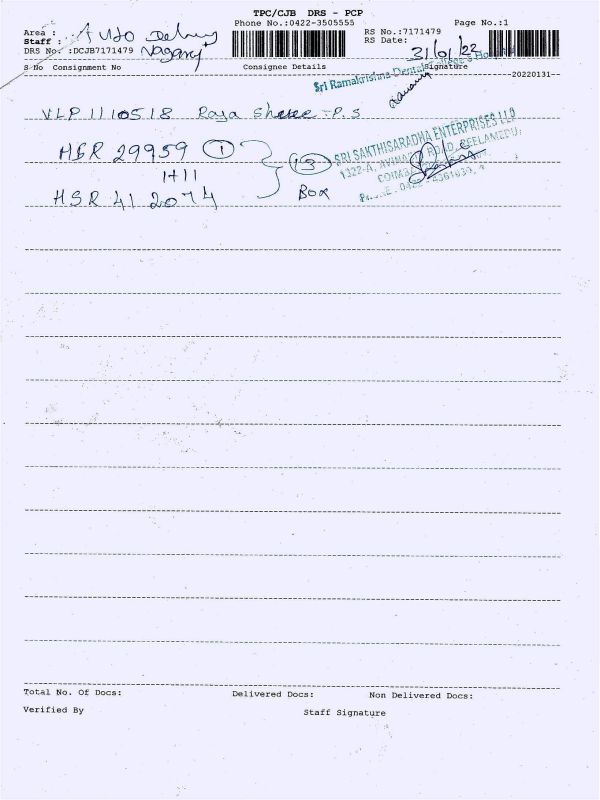 TPC/CJB DRS - PCP
Phone No.:0422-3505555
Page No.:1
Area : Auto Delivery
Staff :
RS No.:7171479
DRS No. :DCJB7171479
RS Date: 31/01/22
S No Consignment No Consignee Details Signature
--20220131--
Sri Ramakrishna Dental College & Hospital
VLP 1110518 Raja P.S
SRI SAKTHISARADHA ENTERPRISES LLP
1322-A, AVINASHI ROAD, PEELAMEDU,
HSR 29959 1
13
1+11
BOX
HSR 412074
Total No. Of Docs: Delivered Docs: Non Delivered Docs:
Verified By Staff Signature